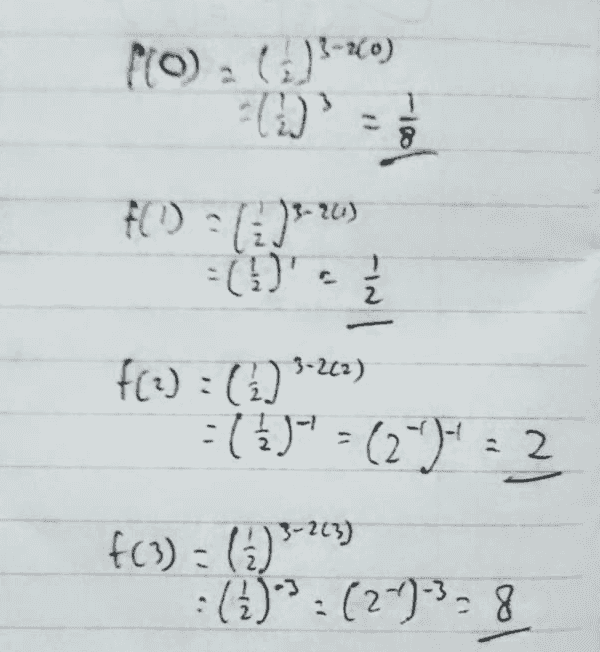 f(0) = (1/2)^3-2(0)
= (1/2)^3 = 1/8
f(1) = (1/2)^3-2(1)
= (1/2)^1 = 1/2
f(2) = (1/2)^3-2(2)
= (1/2)^-1 = (2^-1)^-1 = 2
f(3) = (1/2)^3-2(3)
= (1/2)^-3 = (2^-1)^-3 = 8